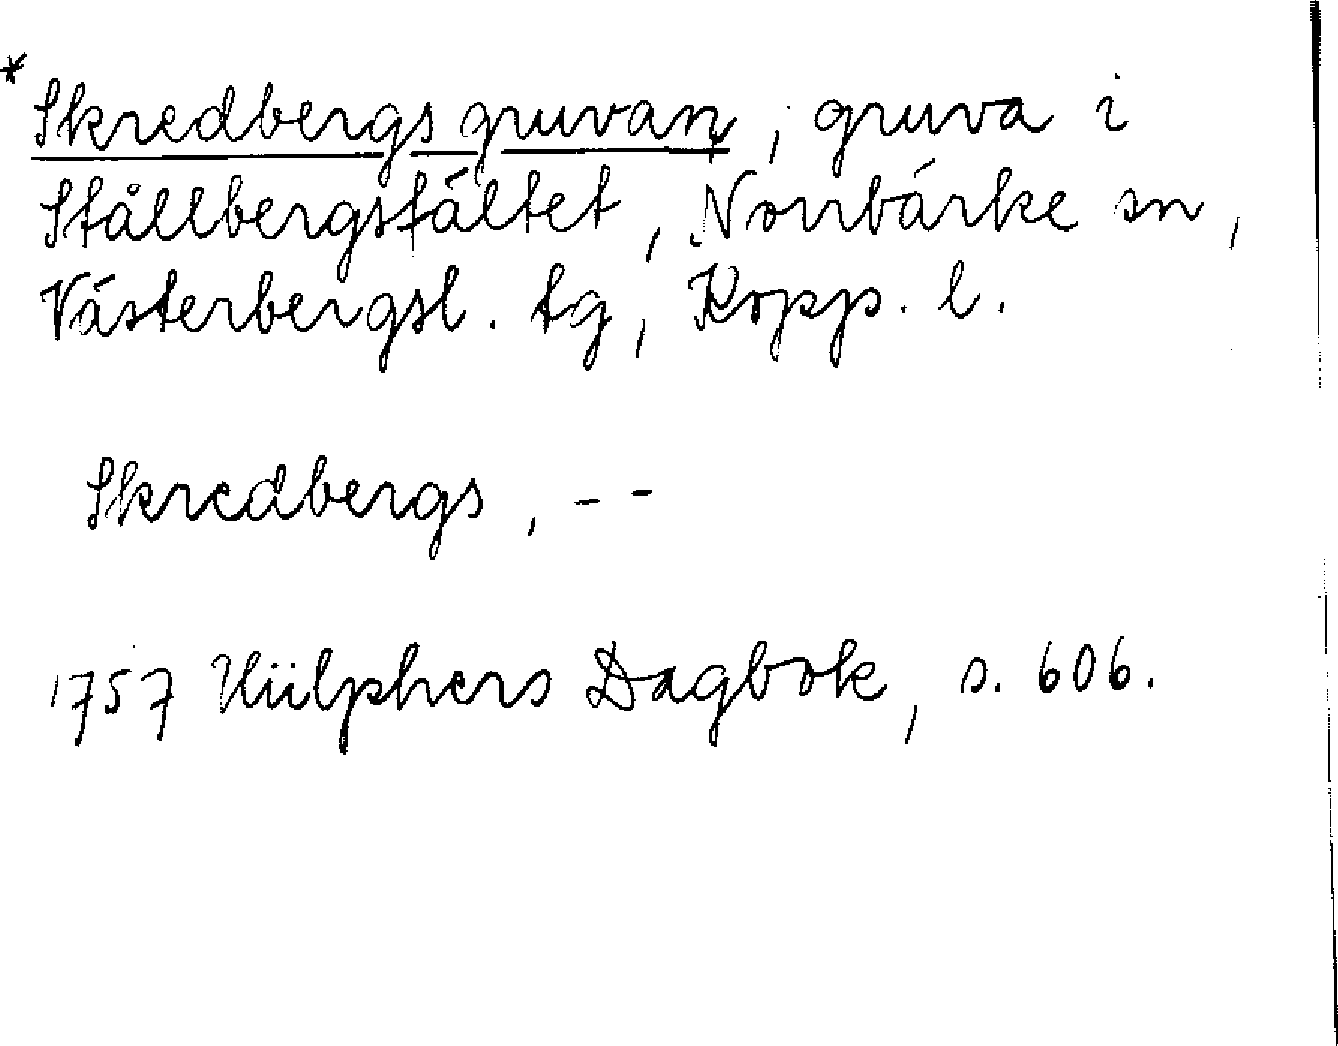 * Skredbergsgruvan, gruva i
Stållbergsfältet, Norrbärke sn,
Västerbergsl. tg, Kopp. l.
Skredbergs, - -
1757 Hülphers Dagbok, s. 606.